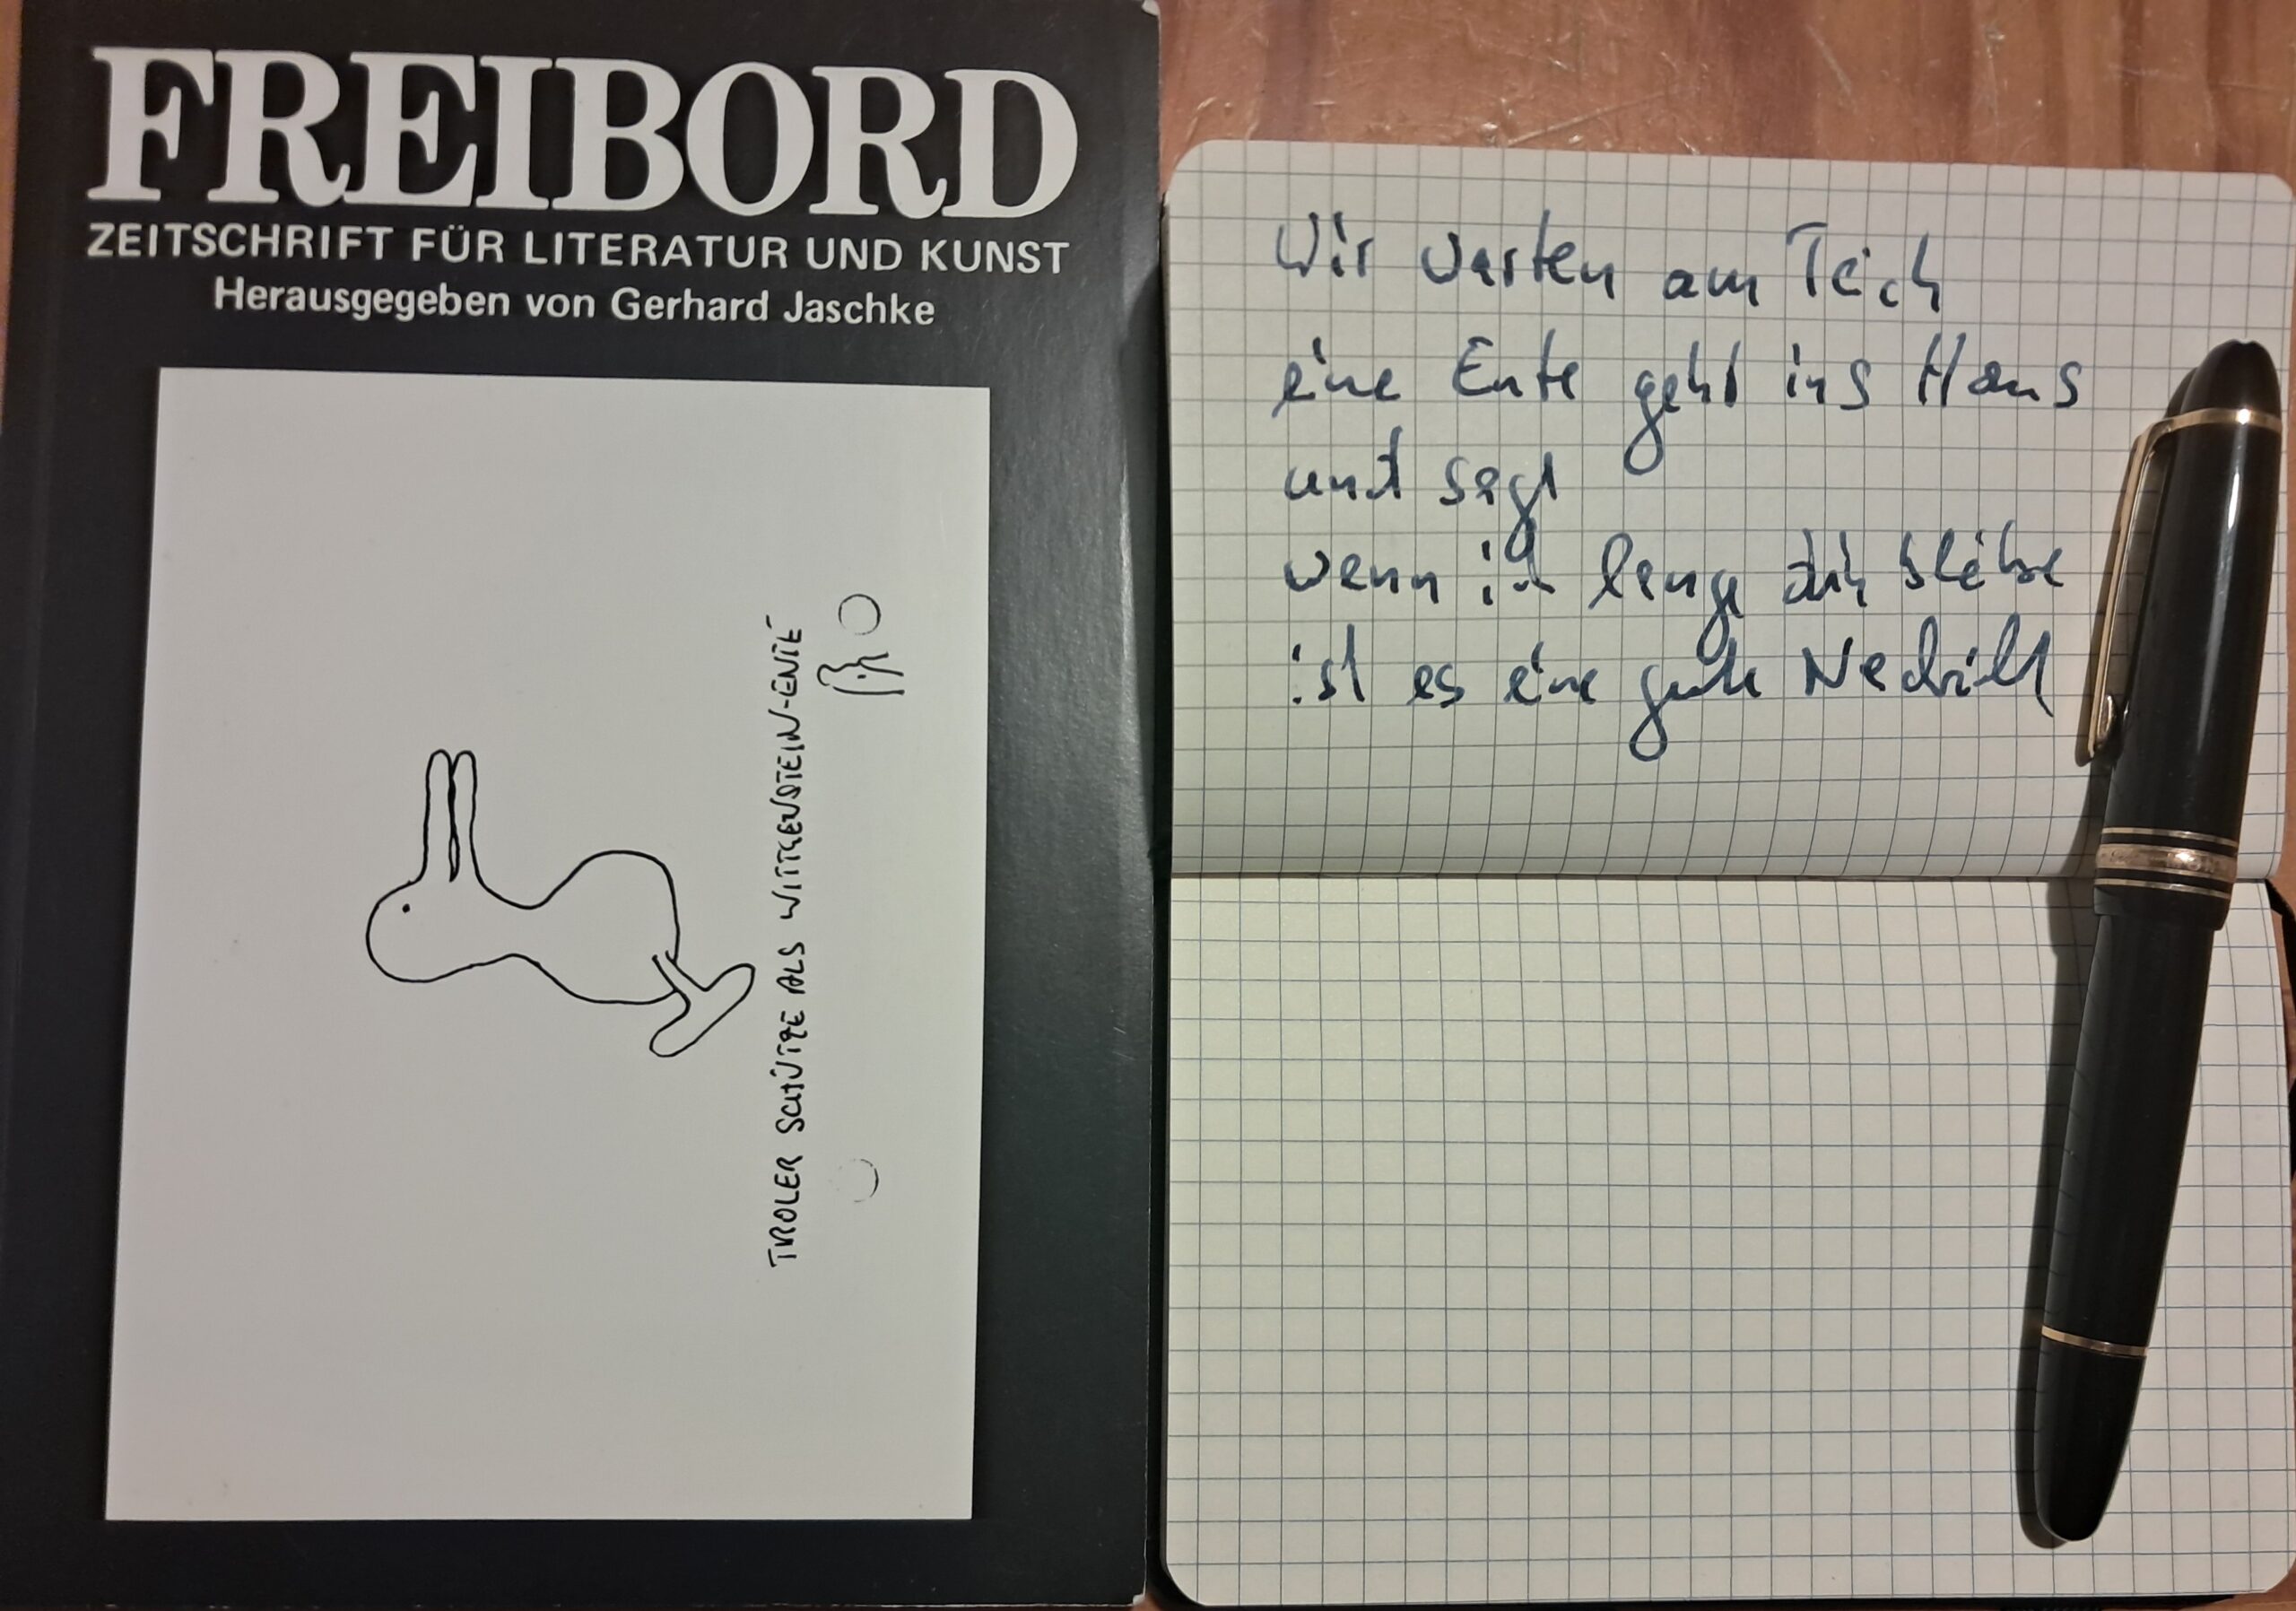 FREIBORD
ZEITSCHRIFT FÜR LITERATUR UND KUNST
Herausgegeben von Gerhard Jaschke
TIROLER SCHÜTZE ALS WITTGENSTEIN-ENTE
Wir warten am Teich
eine Ente geht ins Haus
und sagt
wenn ich lange drin bleibe
ist es eine gute Nachricht